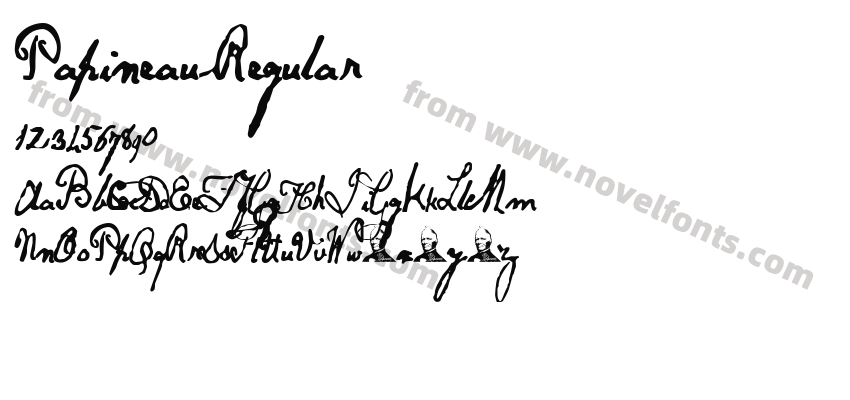 Papineau-Regular
1234567890
AaBbCcDdEeFfGgHhIiJjKkLlMm
NnOoPpQqRrSsTtUuVvWwxyz
from www.novelfonts.com
from www.novelfonts.com